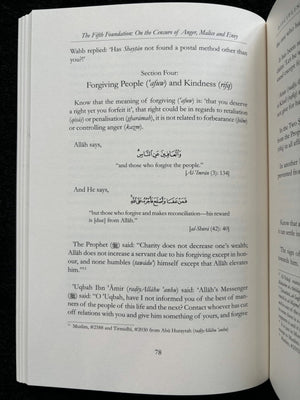 The Fifth Foundation: On the Censure of Anger, Malice and Envy
Wahb replied: 'Has Shayṭān not found a postal method other than
you?!'
Section Four:
Forgiving People ('afuw) and Kindness (rifq)
Know that the meaning of forgiving ('afuw) is: 'that you deserve
a right yet you forfeit it', that right could be in regards to retaliation
(qisās) or penalisation (gharāmah), it is not related to forbearance (hilm)
or controlling anger (kazm).
Allāh says,
وَٱلْعَافِينَ عَنِ ٱلنَّاسِ
"and those who forgive the people."
[Āl-'Imrān (3): 134]
And He says,
فَمَنْ عَفَا وَأَصْلَحَ فَأَجْرُهُۥ عَلَى ٱللَّهِ
"but those who forgive and makes reconciliation—his reward
is [due] from Allāh."
[al-Shūrā (42): 40]
The Prophet (ﷺ) said: "Charity does not decrease one's wealth;
Allāh does not increase a servant due to his forgiving except in hon-
our, and none humbles (tawādu') himself except that Allāh elevates
him."¹
'Uqbah Ibn 'Āmir (radiyAllāhu 'anhu) said: 'Allāh's Messenger
(ﷺ) said: "O 'Uqbah, have I not informed you of the best of man-
ners of the people of this life and the next? Contact whoever has cut
off relations with you and give him something of yours, and forgive
1 Muslim, #2588 and Tirmidhī, #2030 from Abū Hurayrah (radiyAllāhu 'anhu)
78